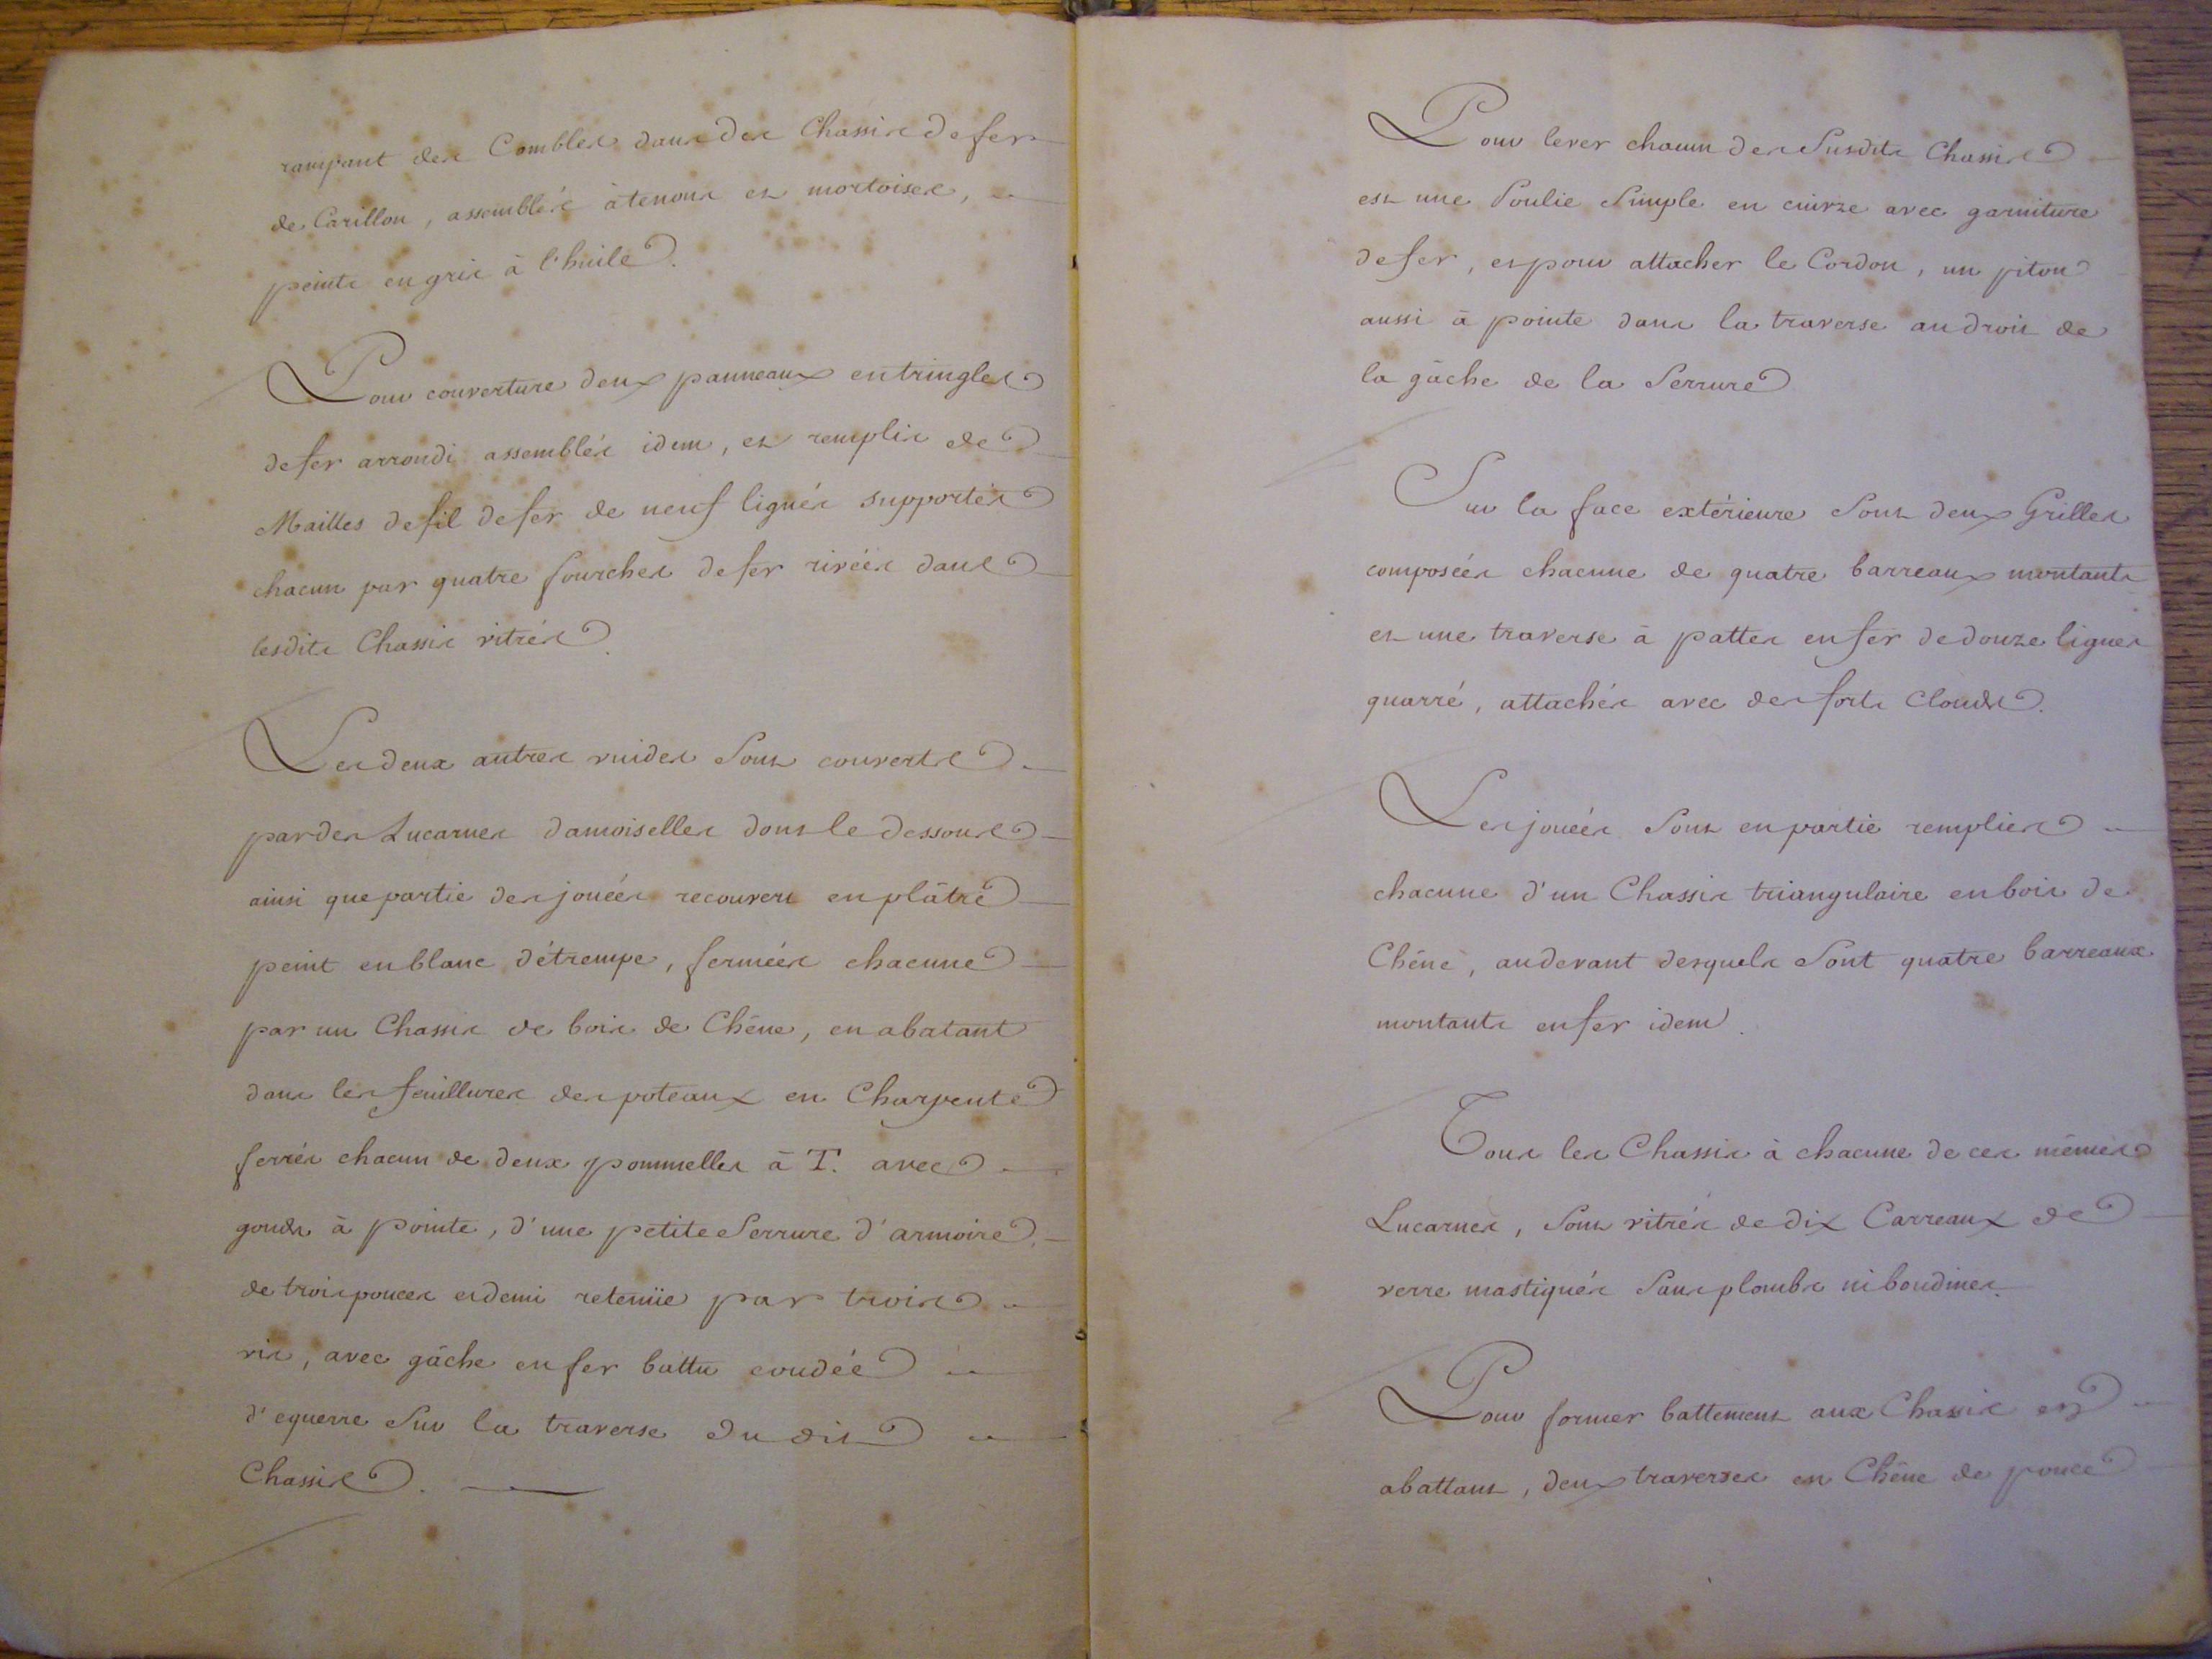 rampant des Combles dans des Chassis de fer
de Carillon, assemblés à tenons et mortoises,
peints en gris à l'huile.
Pour couverture deux panneaux en tringles
de fer arrondi assemblés idem, et remplis de
Mailles de fil de fer de neuf lignés supportés
chacun par quatre fourches de fer rivées dans
lesdits Chassis vitrés.
Les deux autres vuides sont couverts
par des Lucarnes damoiselles dont le dessous
ainsi que partie des jouées recouvert en plâtre
peint en blanc détrempe, fermées chacune
par un Chassis de bois de Chêne, en abatant
dans les feuillures des poteaux en Charpente
ferrés chacun de deux pommelles à T. avec
gonds à pointe, d'une petite Serrure d'armoire,
de trois pouces et demi retenüe par trois
vis, avec gâche en fer battu coudée
d'equerre sur la traverse du dit
Chassis.
Pour lever chacun des Susdits Chassis
est une Poulie Simple en cuivre avec garniture
de fer, et pour attacher le Cordon, un piton
aussi à pointe dans la traverse au droit de
la gâche de la Serrure
Sur la face extérieure sont deux Grilles
composées chacune de quatre barreaux montants
et une traverse à pattes en fer de douze lignes
quarré, attachés avec des forts Clouds.
Les jouées sont en partie remplies
chacune d'un Chassis triangulaire en bois de
Chêne, au devant desquels sont quatre barreaux
montants en fer idem.
Tous les Chassis à chacune de ces mêmes
Lucarnes, sont vitrés de dix Carreaux de
verre mastiqués sans plombs ni boudines.
Pour former battement aux Chassis en
abattant, deux traverses en Chêne de pouce